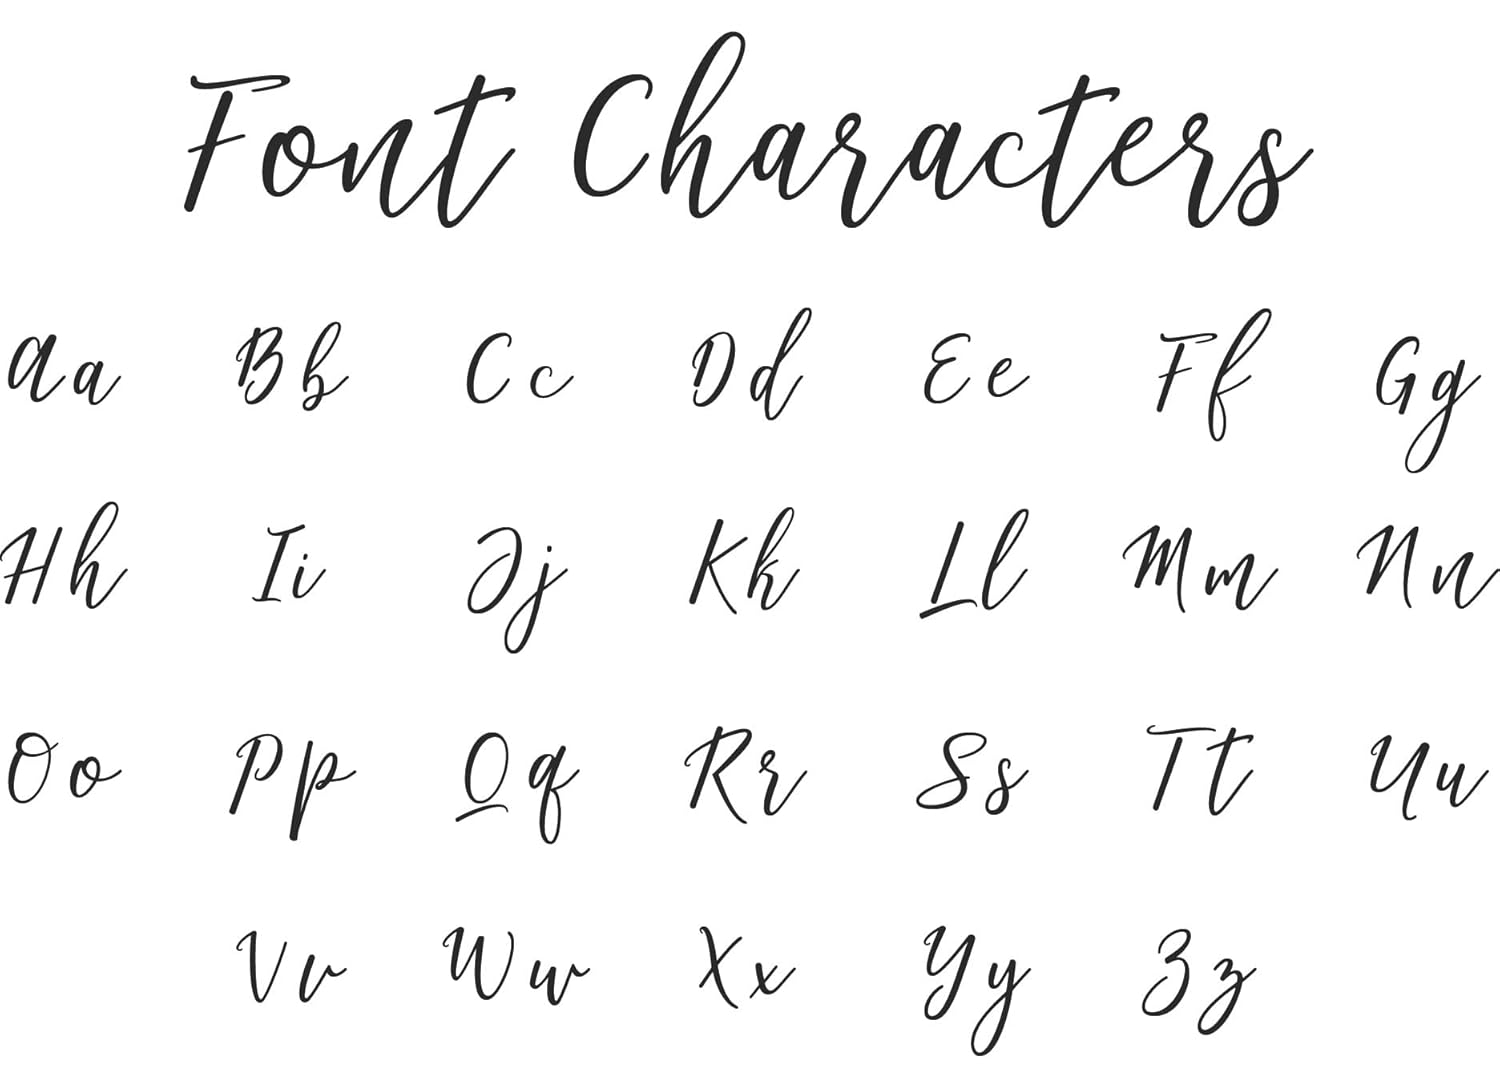 Font Characters
Aa Bb Cc Dd Ee Ff Gg
Hh Ii Jj Kk Ll Mm Nn
Oo Pp Qq Rr Ss Tt Uu
Vv Ww Xx Yy Zz